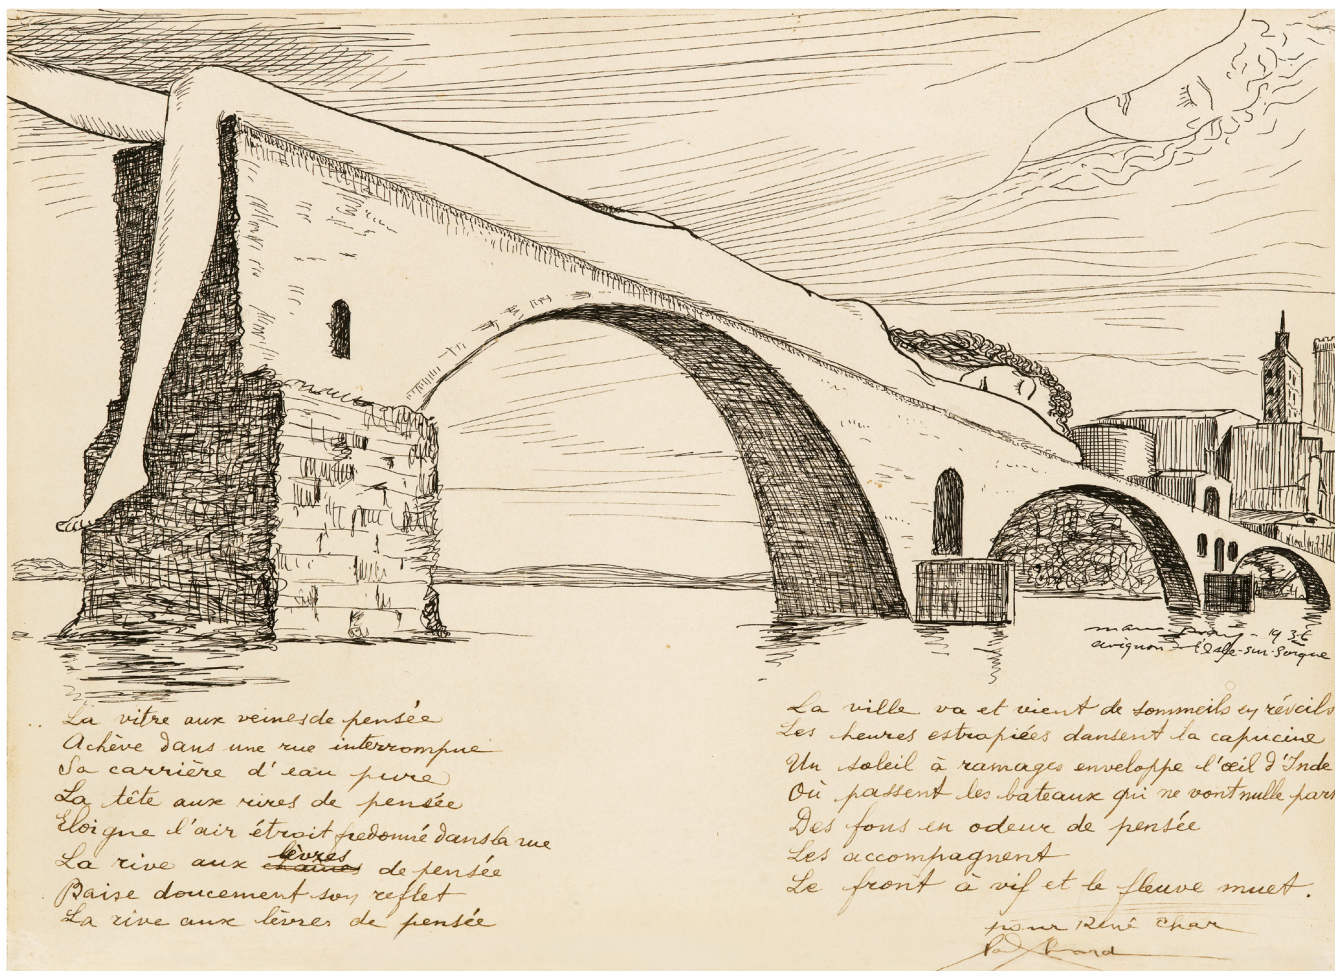 man ray - 1936
avignon - l'Isle-sur-Sorgue
La vitre aux veines de pensée
Achève dans une rue interrompue
Sa carrière d'eau pure
La tête aux rives de pensée
Eloigne l'air étroit fredonné dans la rue
La rive aux lèvres de pensée
Baise doucement son reflet
La rive aux lèvres de pensée
La ville va et vient de sommeils en réveils
Les heures estropiées dansent la capucine
Un soleil à ramages enveloppe l'œil d'Inde
Où passent les bateaux qui ne vont nulle part
Des fous en odeur de pensée
Les accompagnent
Le front à vif et le fleuve muet.
pour René Char
Paul Eluard